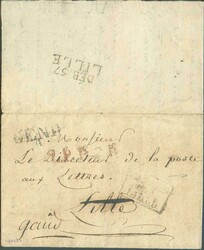 DÉB. 57
LILLE
Monsieur
Le Directeur de la poste
aux Lettres.
Lille
gand